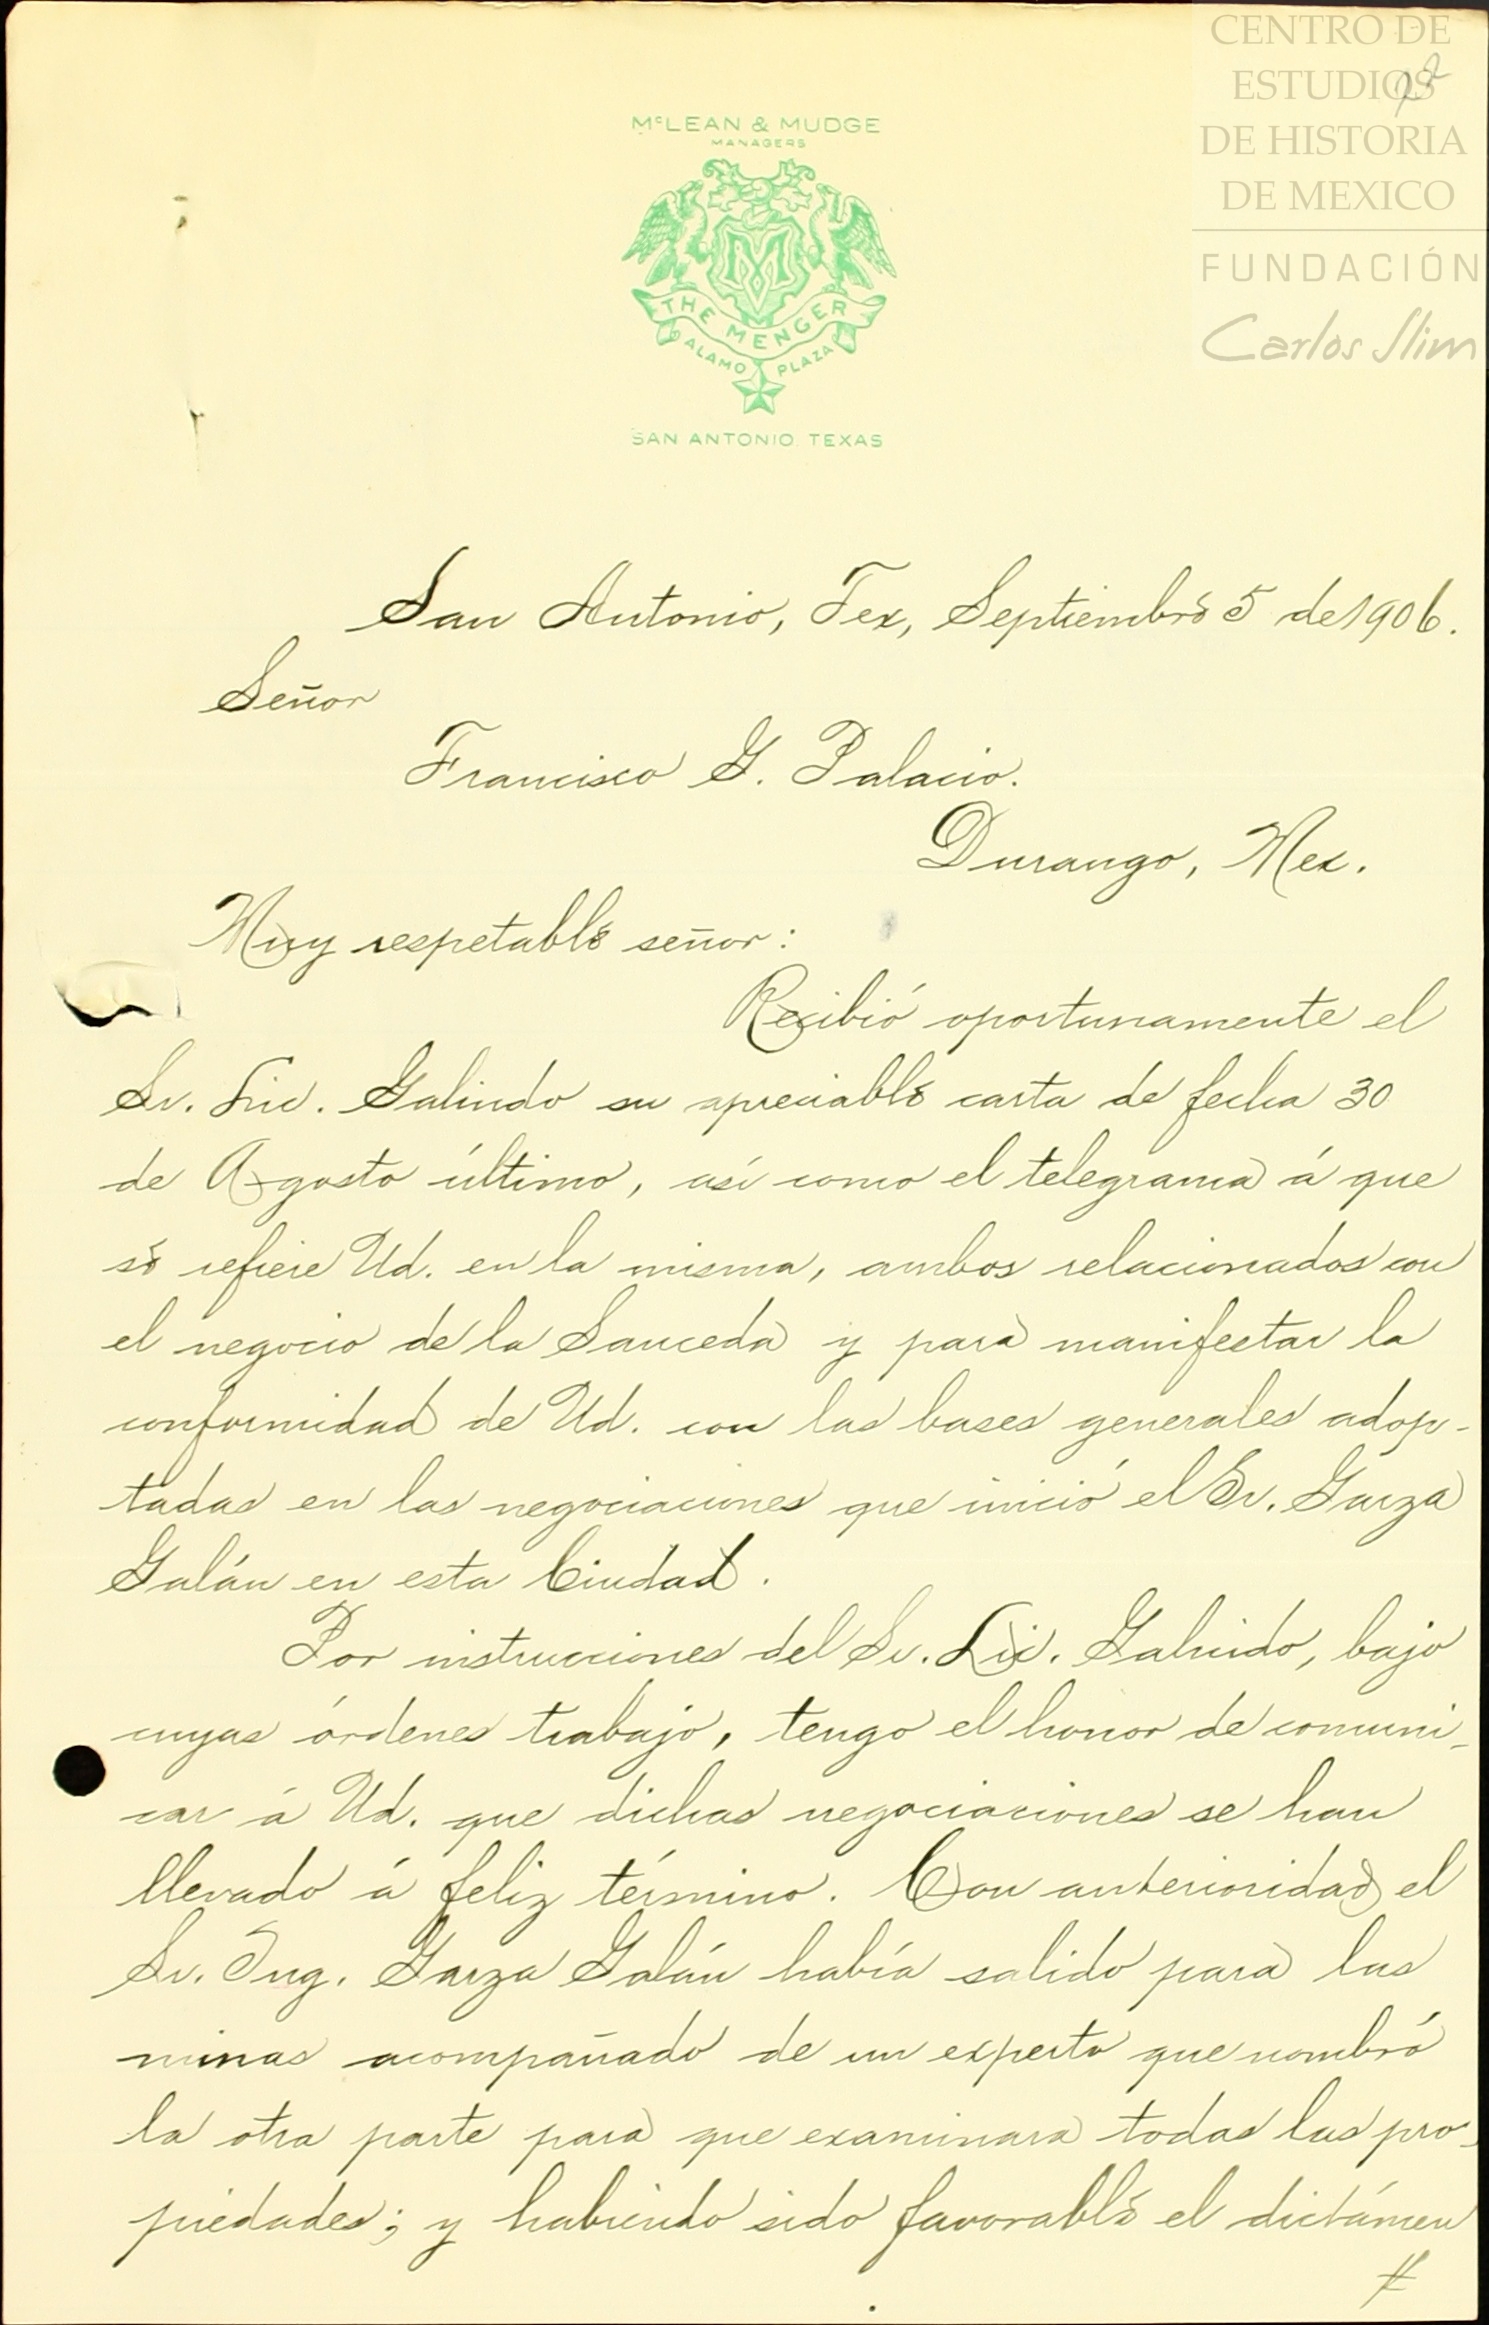 CENTRO DE
ESTUDIOS
DE HISTORIA
DE MEXICO
FUNDACIÓN
Carlos Slim
McLEAN & MUDGE
MANAGERS
M
THE MENGER
ALAMO PLAZA
SAN ANTONIO, TEXAS
San Antonio, Tex, Septiembre 5 de 1906.
Señor
Francisco G. Palacio.
Durango, Mex.
Muy respetable señor:
Recibió oportunamente el
Sr. Lic. Galindo su apreciable carta de fecha 30
de Agosto último, así como el telegrama á que
se refiere Ud. en la misma, ambos relacionados con
el negocio de la Sauceda y para manifestar la
conformidad de Ud. con las bases generales adop-
tadas en las negociaciones que inició el Sr. Garza
Galán en esta Ciudad.
Por instrucciones del Sr. Lic. Galindo, bajo
cuyas órdenes trabajo, tengo el honor de comuni-
car á Ud. que dichas negociaciones se han
llevado á feliz término. Con anterioridad el
Sr. Ing. Garza Galán había salido para las
minas acompañado de un experto que nombró
la otra parte para que examinara todas las pro-
piedades; y habiendo sido favorable el dictámen